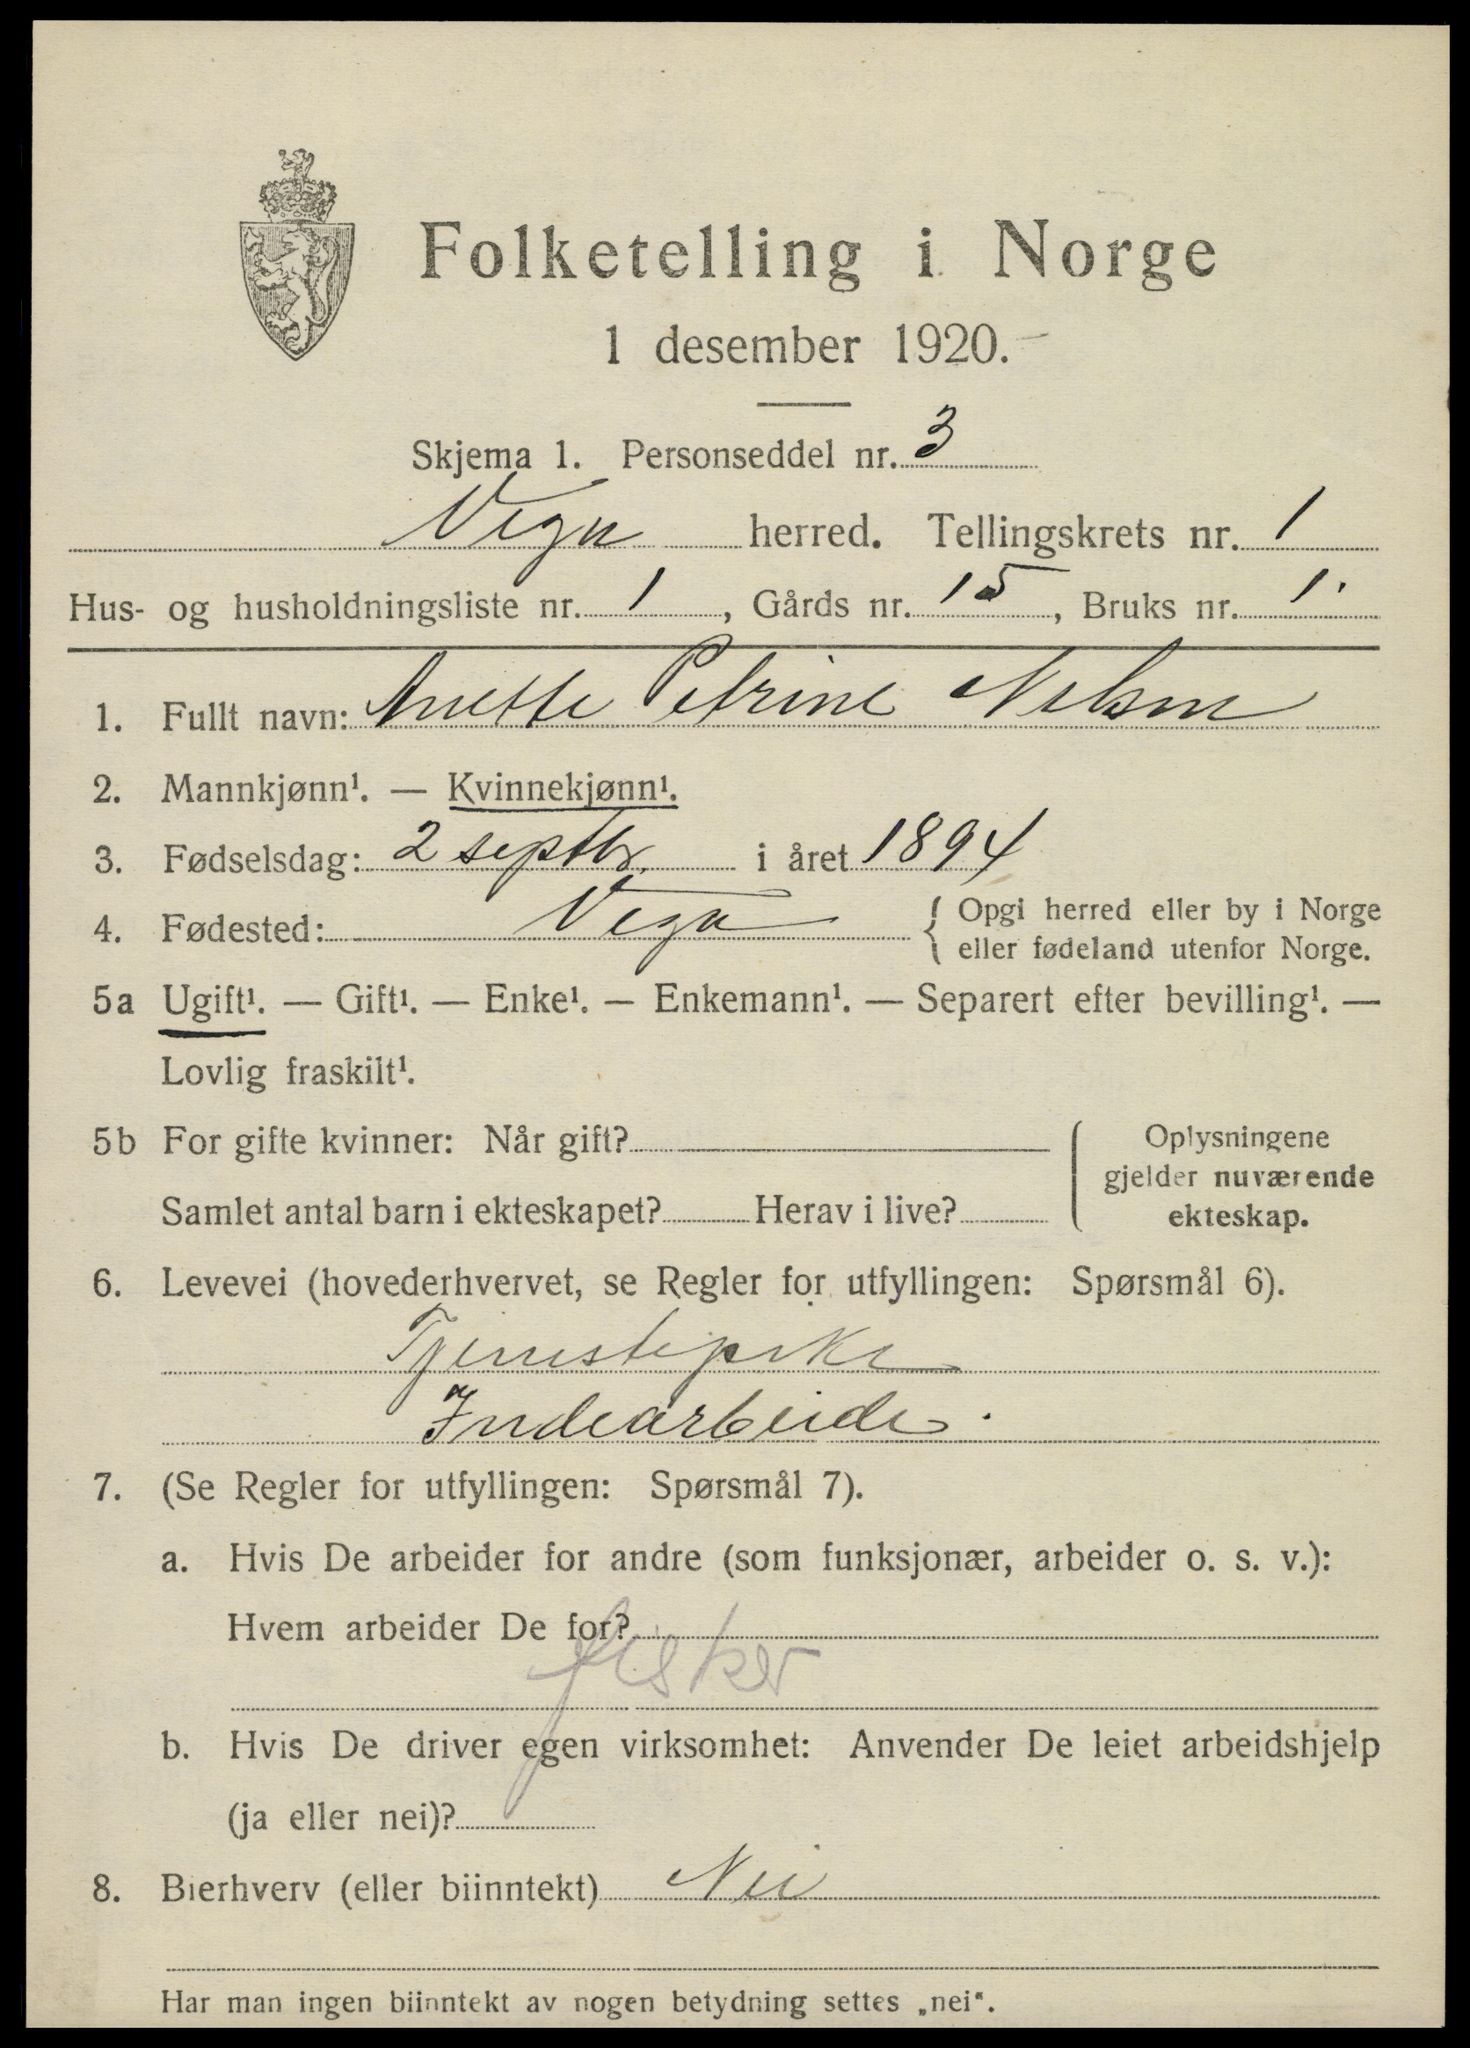 Folketelling i Norge
1 desember 1920.
Skjema 1. Personseddel nr. 3
Vega herred. Tellingskrets nr. 1
Hus- og husholdningsliste nr. 1, Gårds nr. 15, Bruks nr. 1
1. Fullt navn: Anette Petrine Nilsen
2. Mannkjønn¹. — Kvinnekjønn¹.
3. Fødselsdag: 2 septbr. i året 1894
4. Fødested: Vega { Opgi herred eller by i Norge
eller fødeland utenfor Norge.
5a Ugift¹. — Gift¹. — Enke¹. — Enkemann¹. — Separert efter bevilling¹. —
Lovlig fraskilt¹.
5b For gifte kvinner: Når gift? { Oplysningene
gjelder nuværende
Samlet antal barn i ekteskapet? Herav i live? ekteskap.
6. Levevei (hovederhvervet, se Regler for utfyllingen: Spørsmål 6).
Tjenestepike
Indearbeide.
7. (Se Regler for utfyllingen: Spørsmål 7).
a. Hvis De arbeider for andre (som funksjonær, arbeider o. s. v.):
Hvem arbeider De for?
fisker
b. Hvis De driver egen virksomhet: Anvender De leiet arbeidshjelp
(ja eller nei)?
8. Bierhverv (eller biinntekt) Nei
Har man ingen biinntekt av nogen betydning settes „nei“.